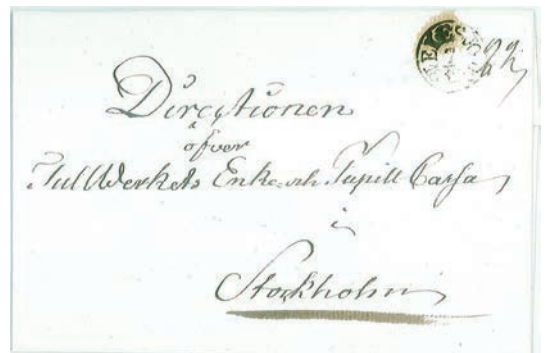 Directionen
öfver
TullWerkets Enke och Pupill Cassa
i
Stockholm